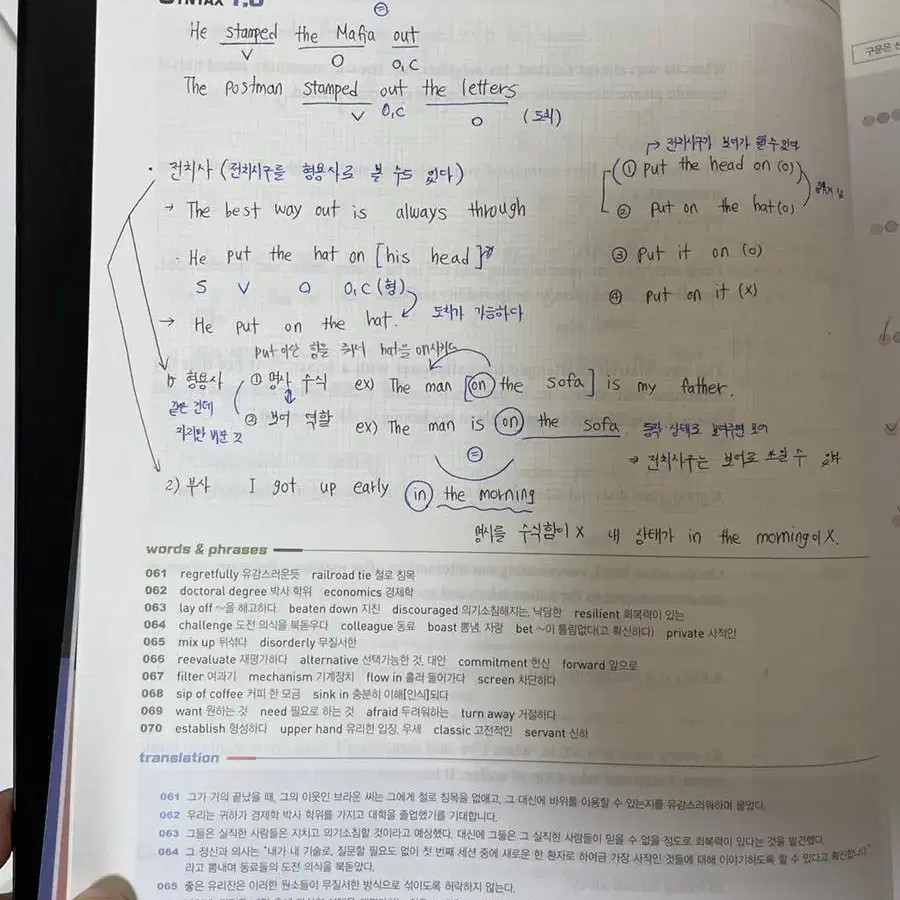 SYNTAX 1.0
구문은
He stamped the Mafia out
V O O.C
The postman stamped out the letters
V O.C O (도치)
· 전치사 (전치사구를 형용사로 볼 수도 있다)
→ The best way out is always through
· He put the hat on [his head]
S V O O.C (형)
도치가 가능하다
→ He put on the hat.
put 이란 힘을 줘서 hat을 on시키다
전치사구가 보어가 될 수 있다
① put the head on (o)
② put on the hat (o)
③ put it on (o)
④ put on it (x)
1) 형용사 ① 명사 수식 ex) The man [on the sofa] is my father.
같은 건데
자리만 바뀐 것
② 보어 역할 ex) The man is on the sofa. 동작 상태로 보여주면 보어
=
→ 전치사구는 보어로 쓰일 수 있다
2) 부사 I got up early in the morning
명사를 수식함이 X 내 상태가 in the morning이 X.
words & phrases
061 regretfully 유감스러운듯 railroad tie 철로 침목
062 doctoral degree 박사 학위 economics 경제학
063 lay off ~을 해고하다 beaten down 지친 discouraged 의기소침해지는, 낙담한 resilient 회복력이 있는
064 challenge 도전 의식을 북돋우다 colleague 동료 boast 뽐냄, 자랑 bet ~이 틀림없다(고 확신하다) private 사적인
065 mix up 뒤섞다 disorderly 무질서한
066 reevaluate 재평가하다 alternative 선택가능한 것, 대안 commitment 헌신 forward 앞으로
067 filter 여과기 mechanism 기계장치 flow in 흘러 들어가다 screen 차단하다
068 sip of coffee 커피 한 모금 sink in 충분히 이해[인식]되다
069 want 원하는 것 need 필요로 하는 것 afraid 두려워하는 turn away 거절하다
070 establish 형성하다 upper hand 유리한 입장, 우세 classic 고전적인 servant 신하
translation
061 그가 거의 끝났을 때, 그의 이웃인 브라운 씨는 그에게 철로 침목을 없애고, 그 대신에 바위를 이용할 수 있는지를 유감스러워하며 물었다.
062 우리는 귀하가 경제학 박사 학위를 가지고 대학을 졸업했기를 기대합니다.
063 그들은 실직한 사람들은 지치고 의기소침할 것이라고 예상했다. 대신에 그들은 그 실직한 사람들이 믿을 수 없을 정도로 회복력이 있다는 것을 발견했다.
064 그 정신과 의사는 "내가 내 기술로, 질문할 필요도 없이 첫 번째 세션 중에 새로운 한 환자로 하여금 가장 사적인 것들에 대해 이야기하도록 할 수 있다고 확신합니다"
라고 뽐내며 동료들의 도전 의식을 북돋았다.
065 좋은 유리잔은 이러한 원소들이 무질서한 방식으로 섞이도록 허락하지 않는다.